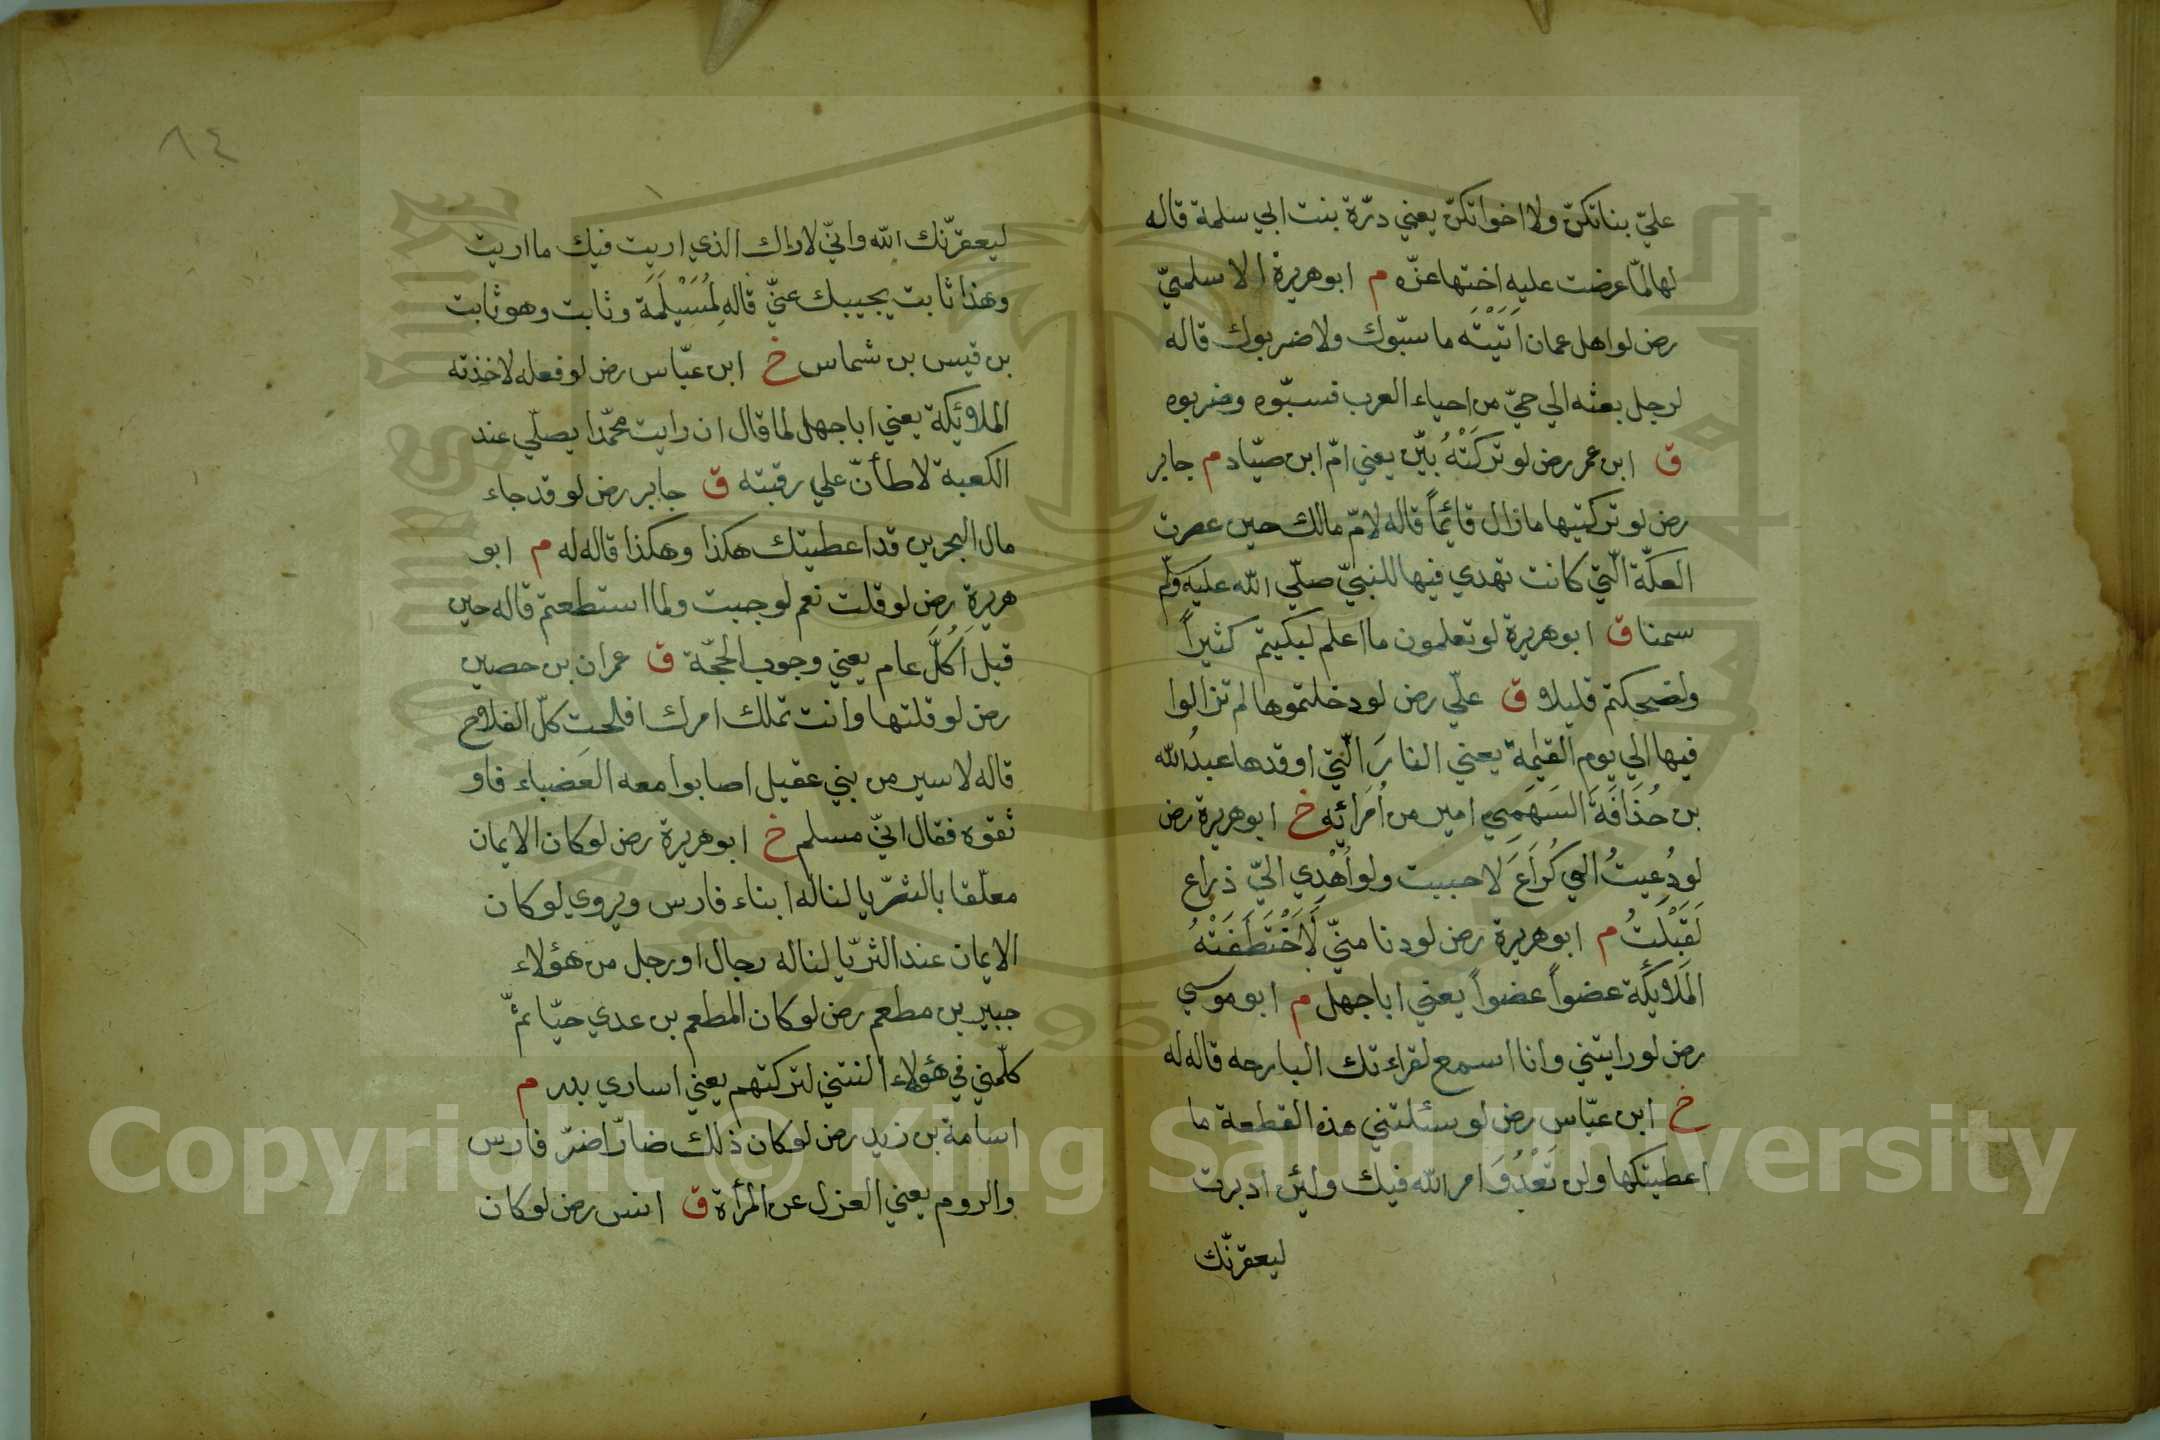 عليّ بناتكنّ ولا اخواتكنّ يعني درّة بنت ابي سلمة قاله
لها لمّا عرضت عليه اختها عزّه م ابو هريرة الاسلميّ
رض لو اهل عمان اَتَيْتَه ما سبّوك ولا ضربوك قاله
لرجل بعثه الي حيّ من احياء العرب فسبّوه وضربوه
ق ابن عمر رض لو تركَتْهُ بيّن يعني امّ ابن صيّاد م جابر
رض لو تركتيها ما زال قائماً قاله لامّ مالك حين عصرت
العكّة الّتي كانت تهدي فيها للنبيّ صلّي الله عليه وسلّم
سمنا ق ابو هريرة لو تعلمون ما اعلم لبكيتم كثيراً
ولضحكتم قليلا ق عليّ رض لو دخلتموها لم تزالوا
فيها الي يوم القيمة يعني النارَ الّتي اوقدها عبدُ الله
بن حُذَافَةَ السَهَمِي امير من اُمَرائِه خ ابو هريرة رض
لو دُعِيتُ الي كُرَاعَ لاحببت ولو اُهْدِي اليّ ذراع
لَقَبَلْتُ م ابو هريرة رض لو دنا منيّ لَاَخْتَطَفَتْهُ
المَلَايكَة عضواً عضواً يعني ابا جهل م ابو موسي
رض لو رايتني وانا اسمع لقراءتك البارحه قاله له
خ ابن عبّاس رض لو سئلتني هذه القطعة ما
اعطيتكها ولن تَعْدُوَ امر الله فيك ولئن ادبرت
ليعقرنّك
١٤
ليعقرّنك الله وانيّ لاراك الذي اريت فيك ما اريت
وهذا ثابت يجيبك عنيّ قاله لِمُسَيْلَمَة وثابت وهو ثابت
بن قيس بن شماس خ ابن عبّاس رض لو فعله لاخذته
الملائيكة يعني ابا جهل لما قال ان رايت محمّدا يصلّي عند
الكعبة لاطأنّ علي رقبته ق جابر رض لو قد جاء
مال البحرين قد اعطيتك هكذا وهكذا قاله له م ابو
هريرة رض لو قلت نعم لوجبت ولما استطعتم قاله حين
قيل اَكُلَّ عام يعني وجوب الحجّة ق عمران بن حصين
رض لو قلتها وانت تملك امرك افلحت كلّ الفلاح
قاله لاسير من بني عقيل اصابوا معه العَضباء فاو
ثقوه فقال انيّ مسلم خ ابو هريرة رض لو كان الايمان
معلّقا بالثريّا لناله ابناء فارس ويروي لو كان
الايمان عند الثريّا لناله رجال او رجل من هؤلاء
جبير بن مطعم رض لو كان المطعم بن عدي حيّا ثمّ
كلّمني في هؤلاء النتني لتركتهم يعني اساري بدر م
اسامة بن زيد رض لو كان ذلك ضارّا ضرّ فارس
والروم يعني العزل عن المرأة ق انس رض لو كان
Copyright © King Saud University
1957